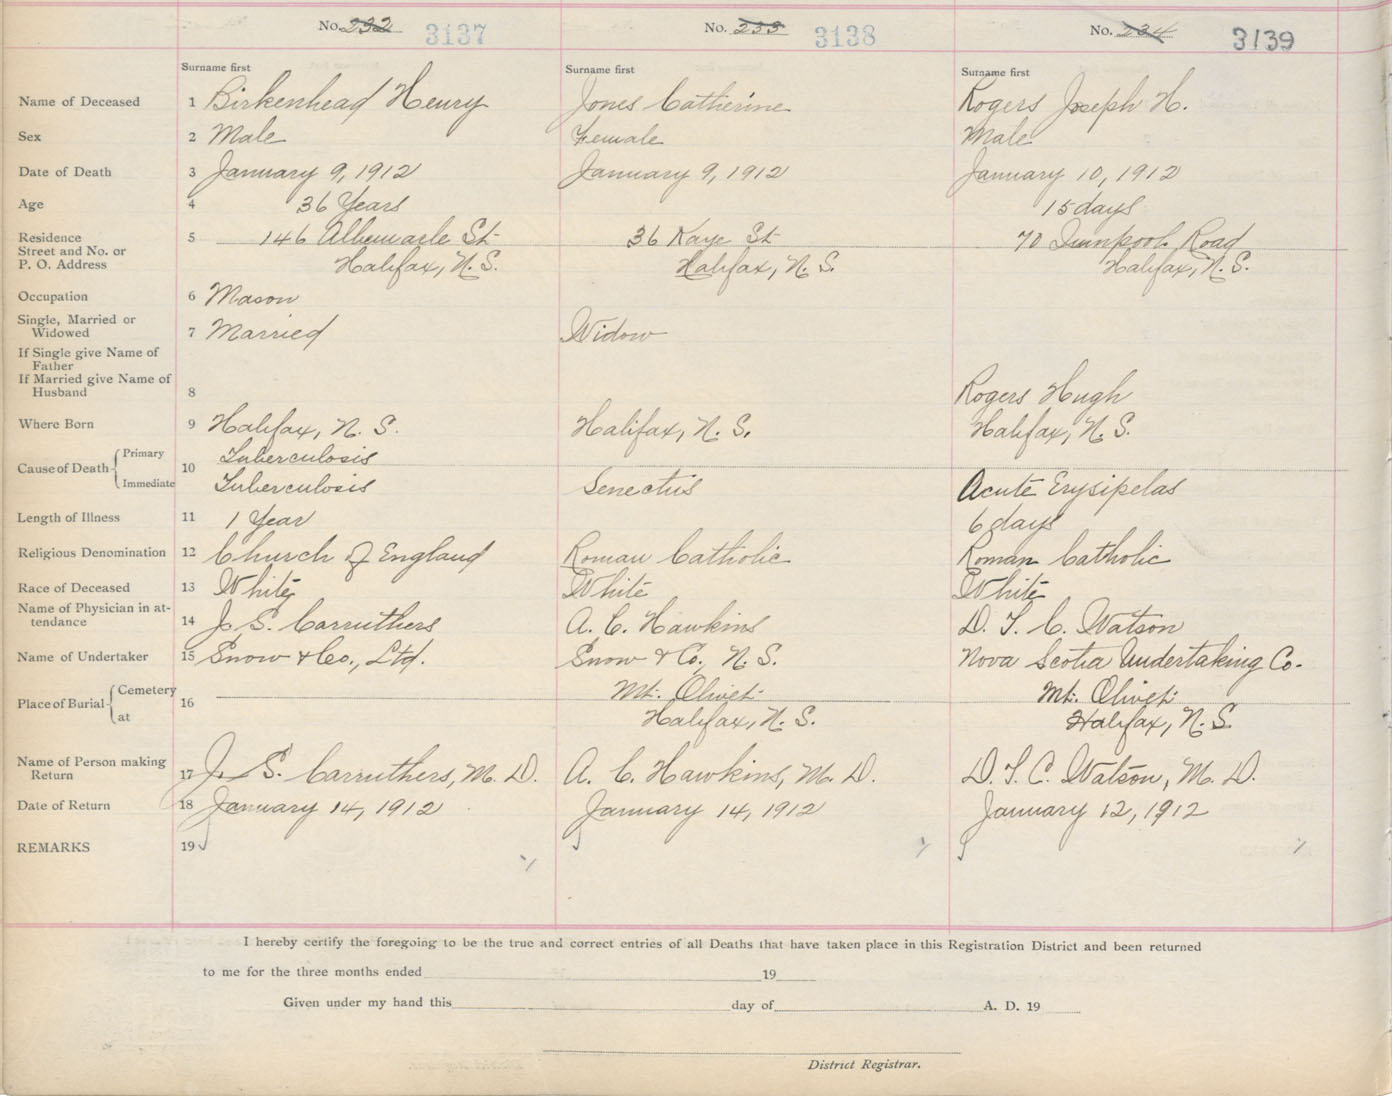 No. 232 3137 No. 233 3138 No. 234 3139
Surname first Surname first Surname first
Name of Deceased 1 Birkenhead Henry Jones Catherine Rogers Joseph H.
Sex 2 Male Female Male
Date of Death 3 January 9, 1912 January 9, 1912 January 10, 1912
Age 4 36 Years 15 days
Residence 5 146 Albemarle St 36 Kaye St 70 Quinpool Road
Street and No. or
P. O. Address Halifax, N. S. Halifax, N. S. Halifax, N. S.
Occupation 6 Mason
Single, Married or
Widowed 7 Married Widow
If Single give Name of
Father
If Married give Name of
Husband 8 Rogers Hugh
Where Born 9 Halifax, N. S. Halifax, N. S. Halifax, N. S.
Primary Tuberculosis
Cause of Death 10
Immediate Tuberculosis Senectus Acute Erysipelas
Length of Illness 11 1 Year 6 days
Religious Denomination 12 Church of England Roman Catholic Roman Catholic
Race of Deceased 13 White White White
Name of Physician in at-
tendance 14 J. S. Carruthers A. C. Hawkins D. T. C. Watson
Name of Undertaker 15 Snow & Co., Ltd. Snow & Co., N. S. Nova Scotia Undertaking Co.
Cemetery Mt. Olivet Mt. Olivet
Place of Burial 16
at Halifax, N. S. Halifax, N. S.
Name of Person making
Return 17 J. S. Carruthers, M. D. A. C. Hawkins, M. D. D. T. C. Watson, M. D.
Date of Return 18 January 14, 1912 January 14, 1912 January 12, 1912
REMARKS 19
I hereby certify the foregoing to be the true and correct entries of all Deaths that have taken place in this Registration District and been returned
to me for the three months ended 19
Given under my hand this day of A. D. 19
District Registrar.